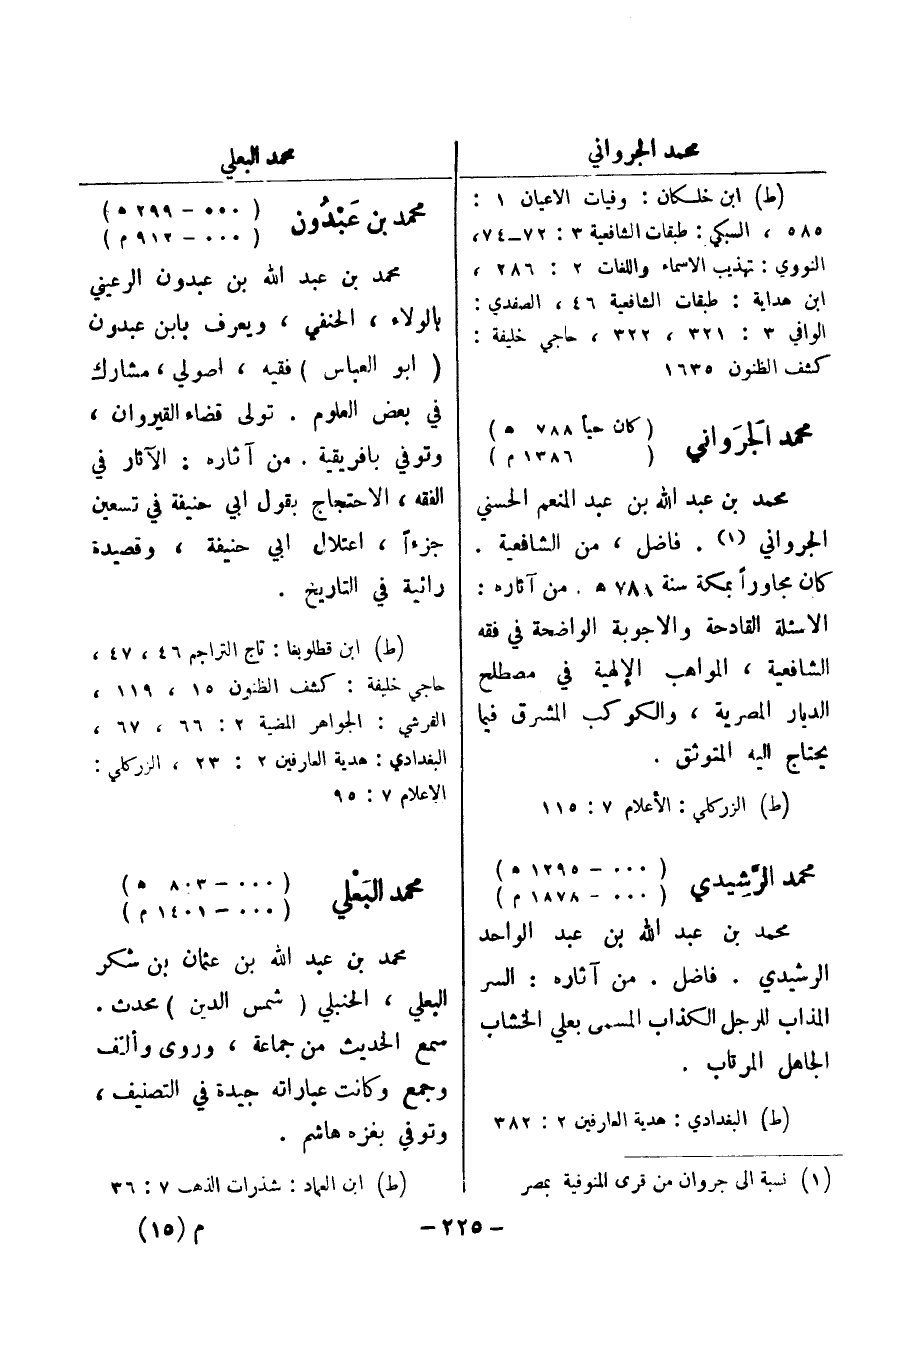 محمد الجرواني
(ط) ابن خلكان : وفيات الاعيان ١ :
٥٨٥ ، السبكي : طبقات الشافعية ٣ : ٧٢–٧٤ ،
النووي : تهذيب الاسماء واللغات ٢ : ٢٨٦ ،
ابن هداية : طبقات الشافعية ٤٦ ، الصفدي :
الوافي ٣ : ٣٢١ ، ٣٢٢ ، حاجي خليفة :
كشف الظنون ١٦٣٥
محمد الجَرَواني ( كان حياً ٧٨٨ ه )
( ١٣٨٦ م )
محمد بن عبد الله بن عبد المنعم الحسني
الجرواني (١) . فاضل ، من الشافعية .
كان مجاوراً بمكة سنة ٧٨٨ ه . من آثاره :
الاسئلة القادحة والاجوبة الواضحة في فقه
الشافعية ، المواهب الإلهية في مصطلح
الديار المصرية ، والكوكب المشرق فيما
يحتاج اليه المتوثق .
(ط) الزركلي : الأعلام ٧ : ١١٥
محمد الرَّشيدي ( ٠٠٠ – ١٢٩٥ ه )
( ٠٠٠ – ١٨٧٨ م )
محمد بن عبد الله بن عبد الواحد
الرشيدي . فاضل . من آثاره : السر
المذاب للرجل الكذاب المسمى بعلي الخشاب
الجاهل المرتاب .
(ط) البغدادي : هدية العارفين ٢ : ٣٨٢
(١) نسبة الى جروان من قرى المنوفية بمصر
محمد البعلي
محمد بن عَبْدُون ( ٠٠٠ – ٢٩٩ ه )
( ٠٠٠ – ٩١٢ م )
محمد بن عبد الله بن عبدون الرعيني
بالولاء ، الحنفي ، ويعرف بابن عبدون
( ابو العباس ) فقيه ، اصولي ، مشارك
في بعض العلوم . تولى قضاء القيروان ،
وتوفي بافريقية . من آثاره : الآثار في
الفقه ، الاحتجاج بقول ابي حنيفة في تسعين
جزءاً ، اعتلال ابي حنيفة ، وقصيدة
رائية في التاريخ .
(ط) ابن قطلوبغا : تاج التراجم ٤٦ ، ٤٧ ،
حاجي خليفة : كشف الظنون ١٥ ، ١١٩ ،
القرشي : الجواهر المضية ٢ : ٦٦ ، ٦٧ ،
البغدادي : هدية العارفين ٢ : ٢٣ ، الزركلي :
الاعلام ٧ : ٩٥
محمد البَعْلي ( ٠٠٠ – ٨٠٣ ه )
( ٠٠٠ – ١٤٠١ م )
محمد بن عبد الله بن عثمان بن شكر
البعلي ، الحنبلي ( شمس الدين ) محدث .
سمع الحديث من جماعة ، وروى وألف
وجمع وكانت عباراته جيدة في التصنيف ،
وتوفي بغزه هاشم .
(ط) ابن العماد : شذرات الذهب ٧ : ٣٦
– ٢٢٥ –
م (١٥)